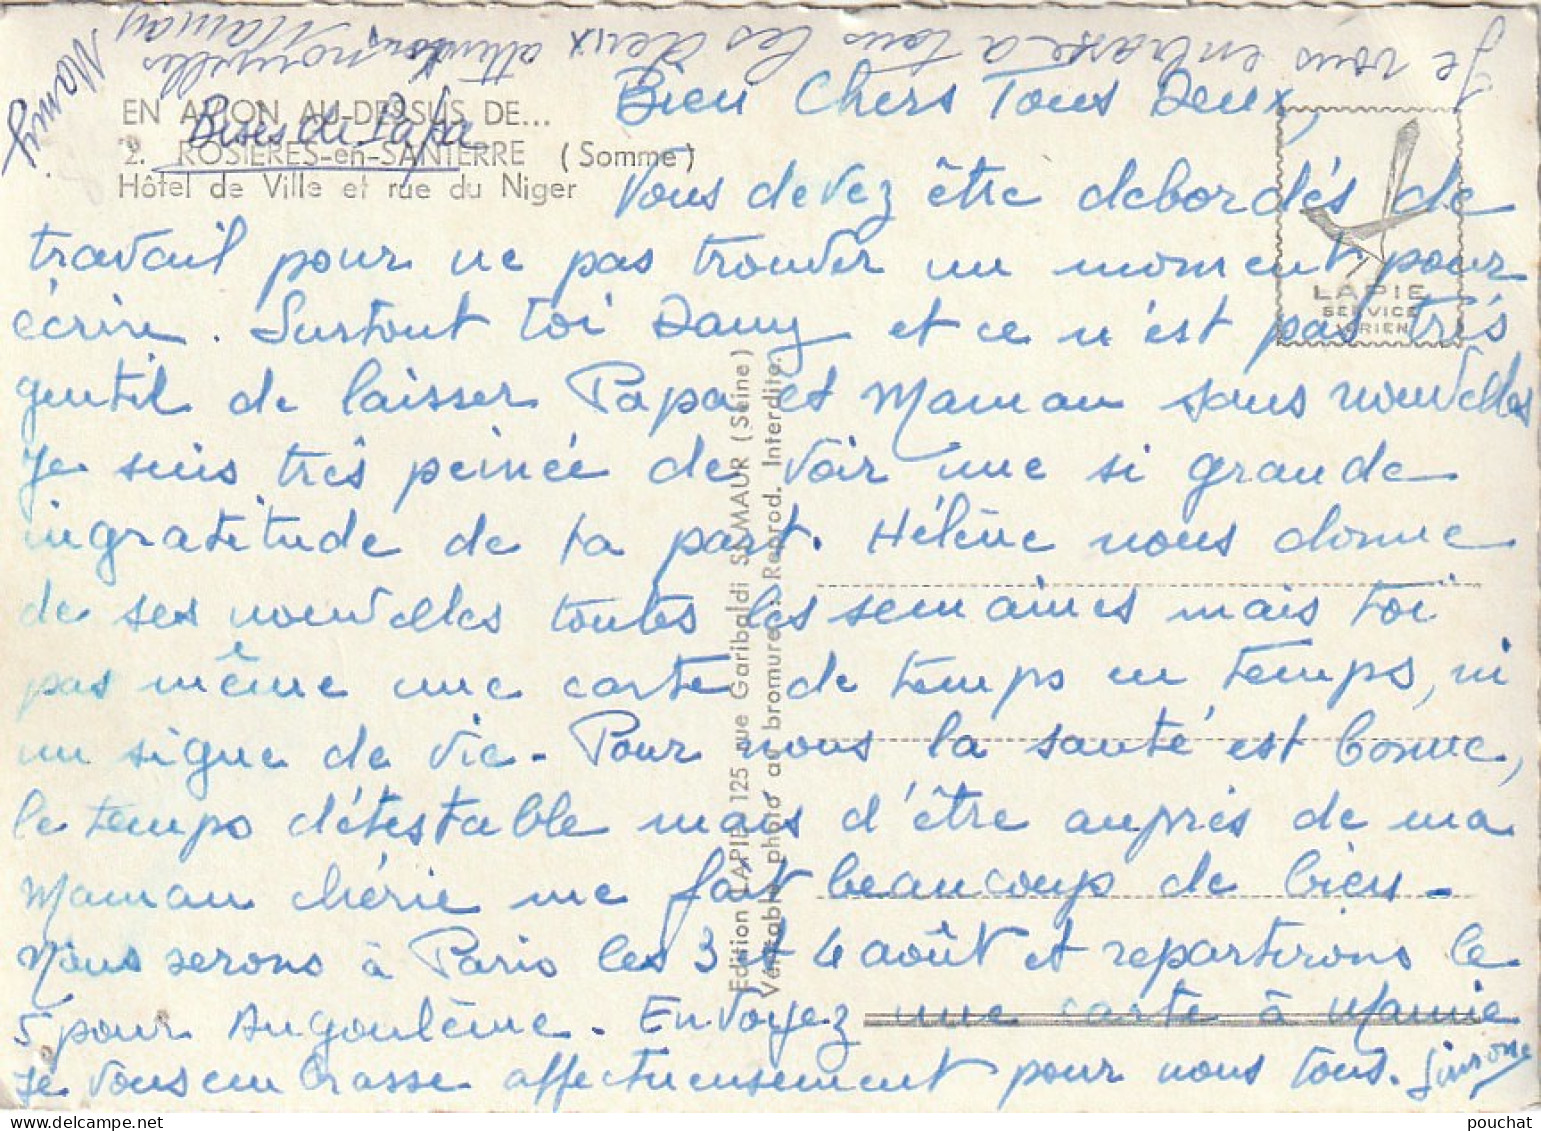 Je vous embrasse à tous les deux attendons nouvelles Maman
Mamy
EN AVION AU-DESSUS DE...
Bises de Papa
2. ROSIÈRES-en-SANTERRE (Somme)
Hôtel de Ville et rue du Niger
LAPIE
SERVICE
AÉRIEN
Bien Chers Tous Deux,
Vous devez être debordés de
travail pour ne pas trouver un moment pour
écrire. Surtout toi Dany et ce n'est pas très
gentil de laisser Papa et Maman sans nouvelles
Je suis très peinée de voir une si grande
ingratitude de ta part. Hélène nous donne
de ses nouvelles toutes les semaines mais toi
pas même une carte de temps en temps, ni
un signe de vie - Pour nous la santé est bonne,
le temps détestable mais d'être auprès de ma
Maman chérie me fait beaucoup de bien -
Nous serons à Paris les 3 et 4 août et repartirons le
5 pour Angoulême. Envoyez une carte à Mamie
Je vous embrasse affectueusement pour nous tous. Simone
Edition LAPIE 125 rue Garibaldi ST-MAUR (Seine)
Véritable photo au bromure. Reprod. Interdite.
pouchat